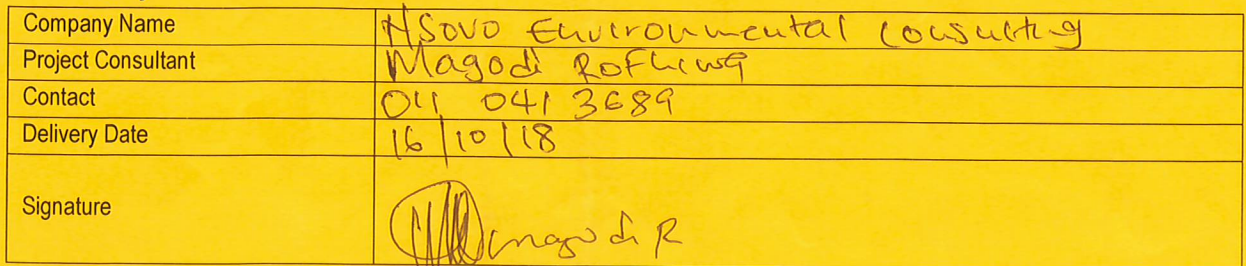 Company Name NSovo Environmental consulting
Project Consultant Magodi Rofhiwa
Contact 011 041 3689
Delivery Date 16/10/18
Signature magodi R